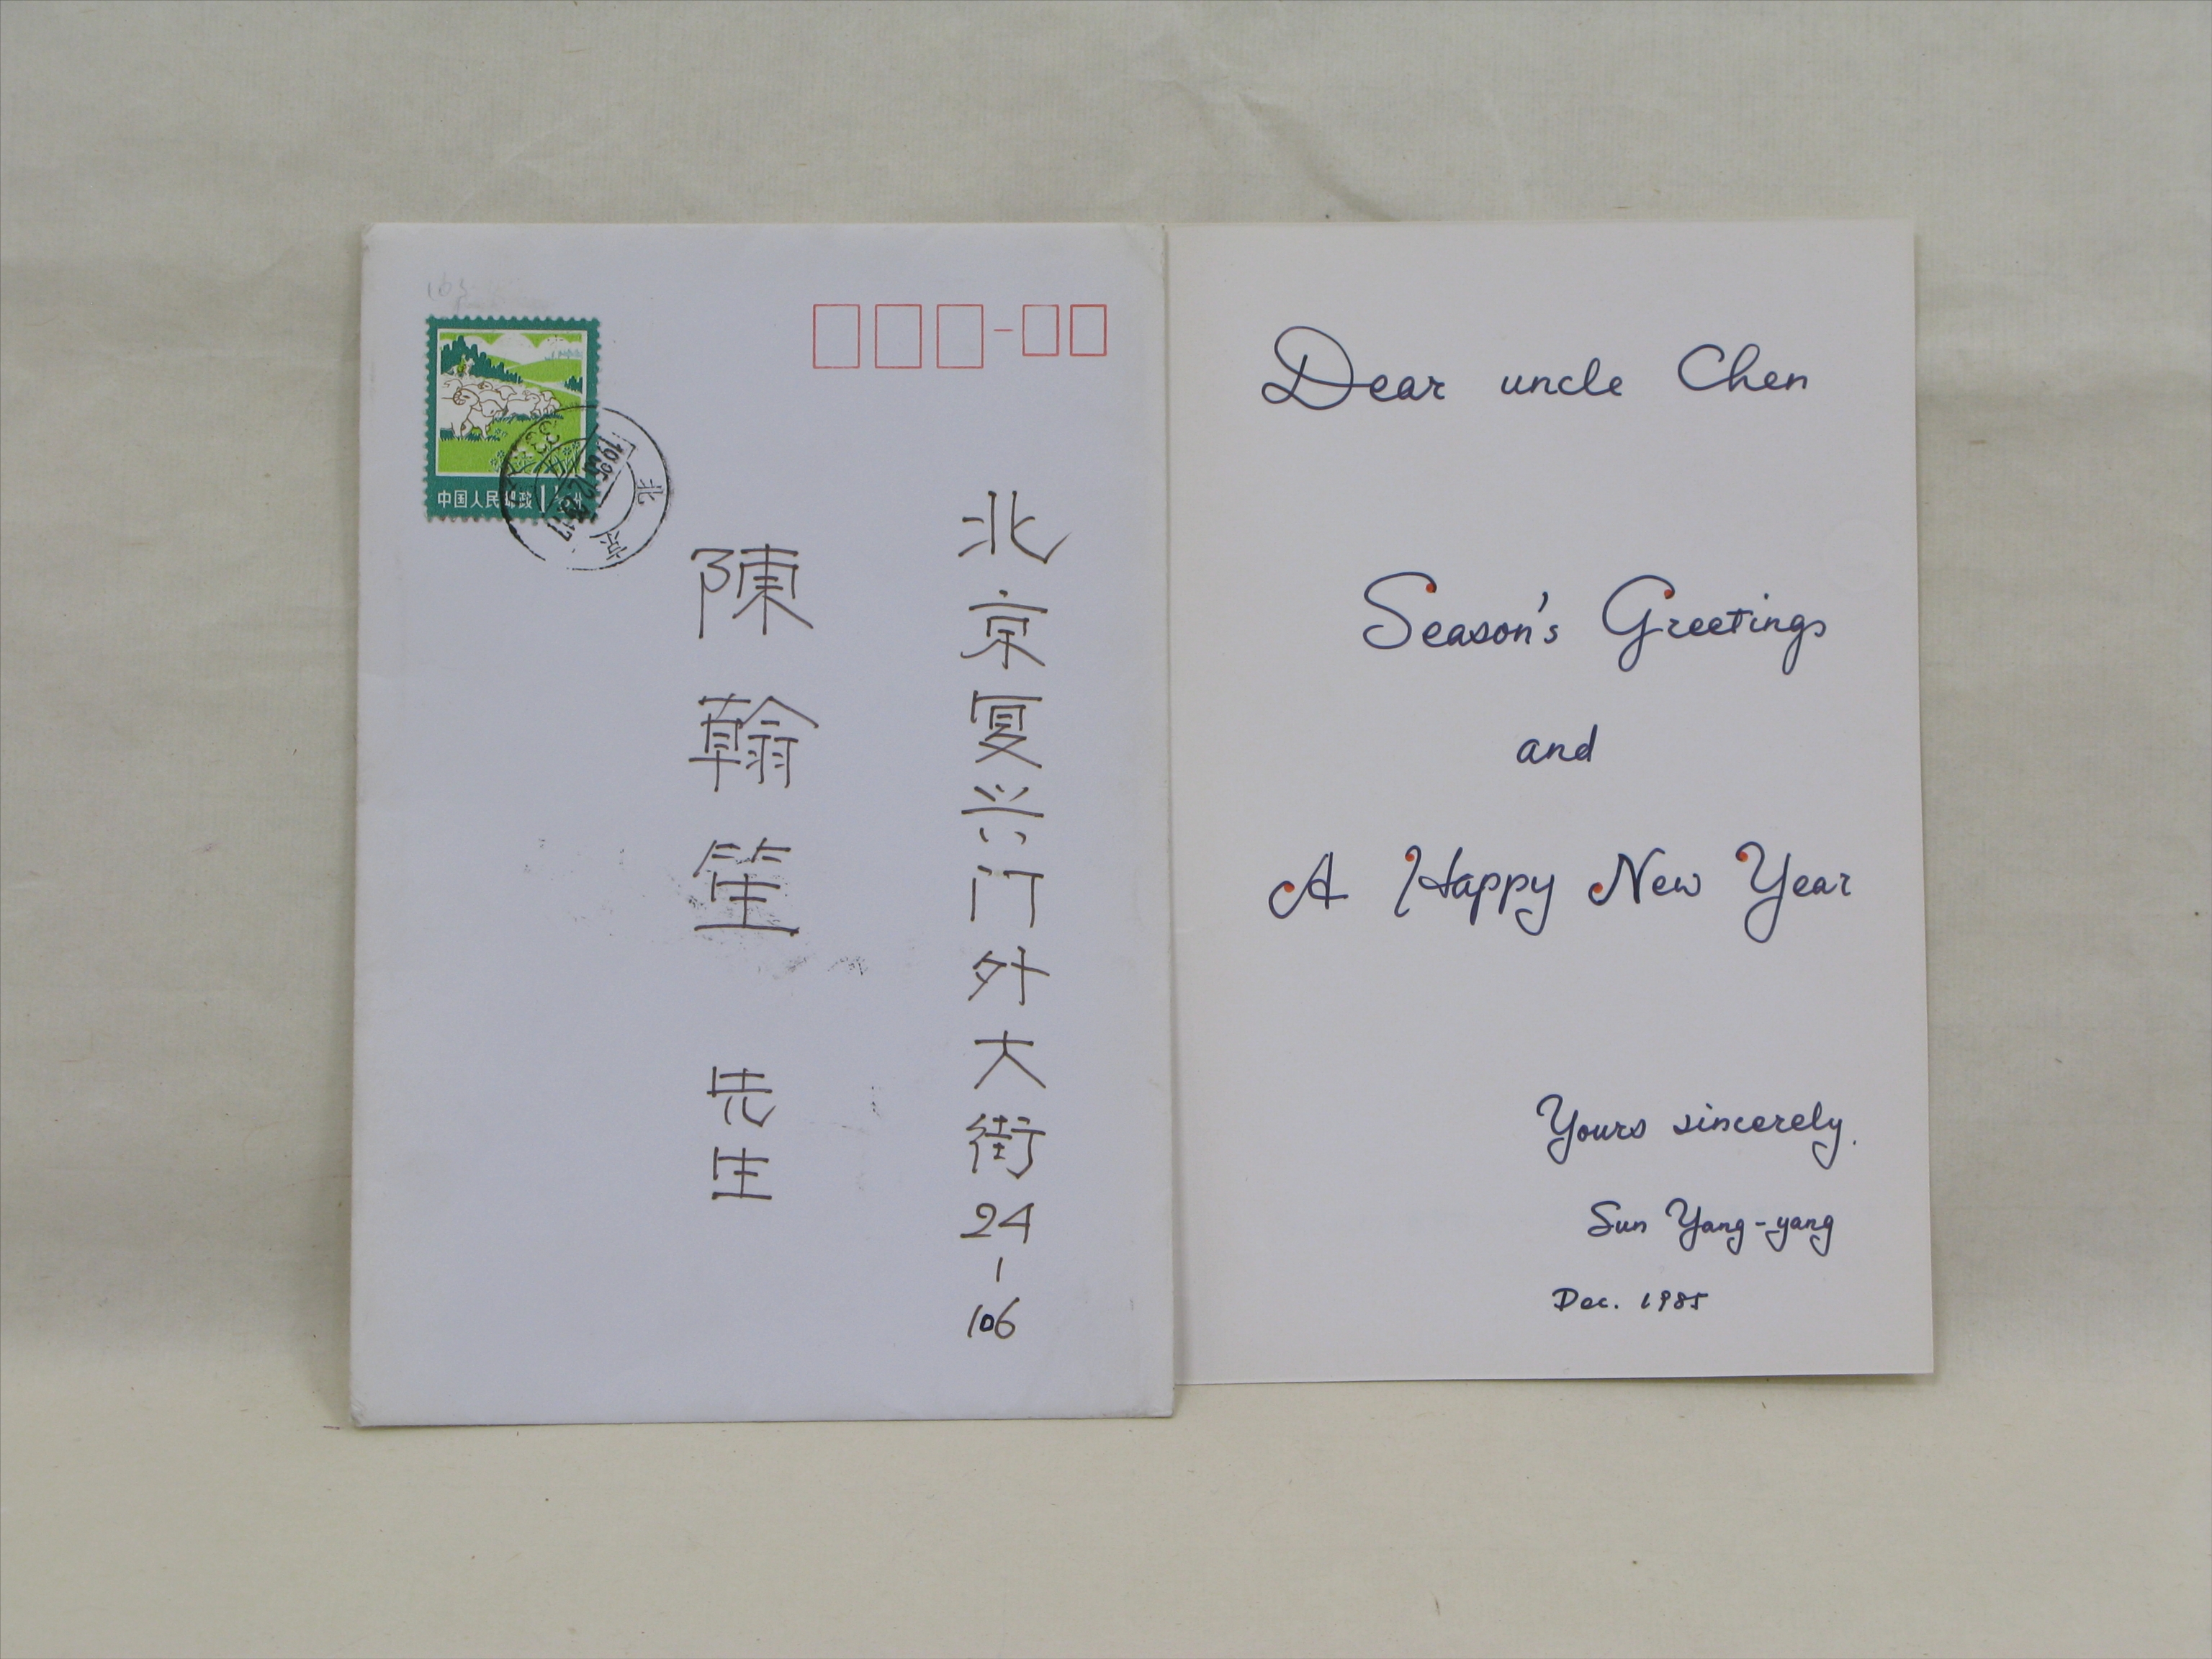 中国人民邮政
北京
北京复兴门外大街24-106
陳翰笙 先生
Dear uncle Chen
Season's Greetings
and
A Happy New Year
Yours sincerely.
Sun Yang-yang
Dec. 1985